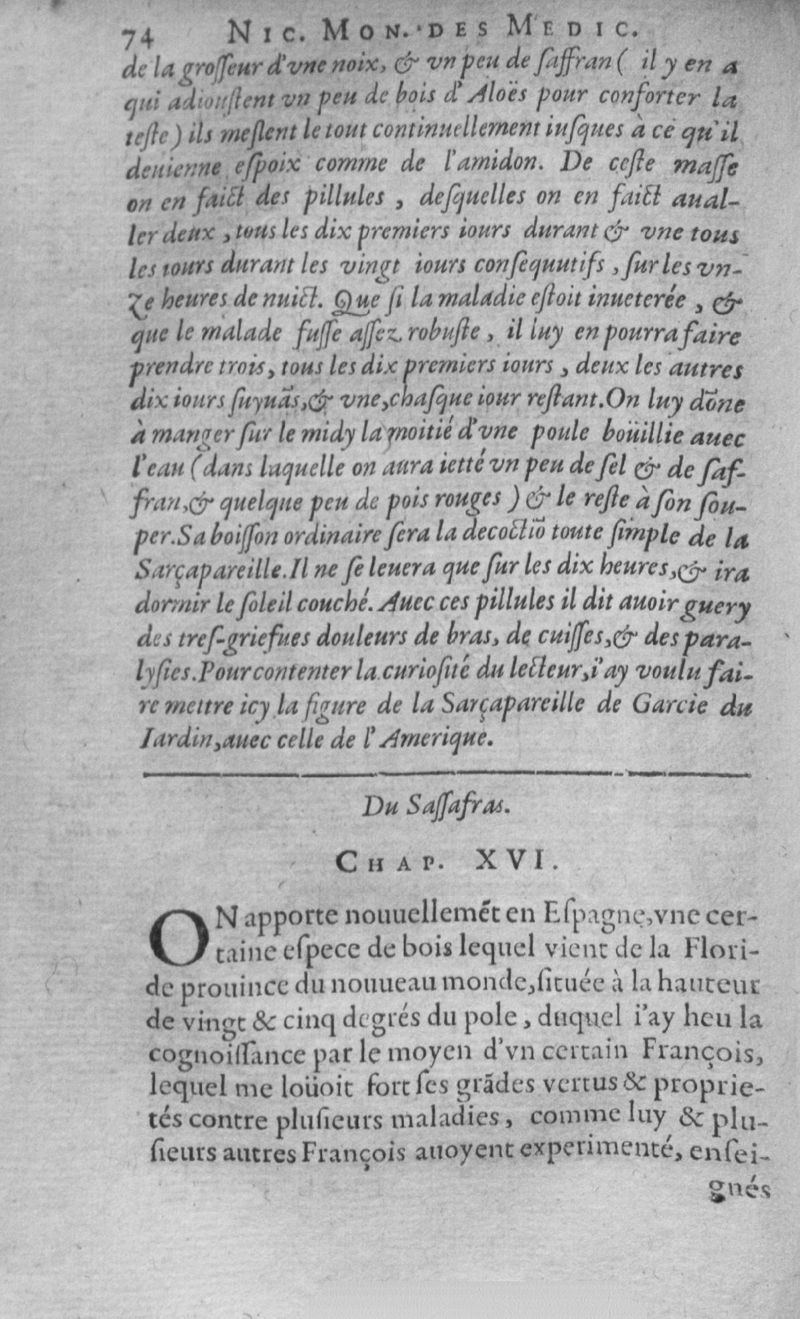 74 NIC. MON. DES MEDIC.
de la groſſeur d'vne noix, & vn peu de ſaffran ( il y en a
qui adiouſtent vn peu de bois d'Aloës pour conforter la
teſte) ils meſlent le tout continuellement iuſques à ce qu'il
deuienne eſpoix comme de l'amidon. De ceſte maſſe
on en faict des pillules, deſquelles on en faict aual-
ler deux, tous les dix premiers iours durant & vne tous
les iours durant les vingt iours conſequutifs, ſur les vn-
ze heures de nuict. Que ſi la maladie eſtoit inueterée, &
que le malade fuſſe aſſez robuſte, il luy en pourra faire
prendre trois, tous les dix premiers iours, deux les autres
dix iours ſuyuãs, & vne, chaſque iour reſtant. On luy dõne
à manger ſur le midy la moitié d'vne poule boüillie auec
l'eau (dans laquelle on aura ietté vn peu de ſel & de ſaf-
fran, & quelque peu de pois rouges) & le reſte à ſon ſou-
per. Sa boiſſon ordinaire ſera la decoctiõ toute ſimple de la
Sarçapareille. Il ne ſe leuera que ſur les dix heures, & ira
dormir le ſoleil couché. Auec ces pillules il dit auoir guery
des treſ-griefues douleurs de bras, de cuiſſes, & des para-
lyſies. Pour contenter la curioſité du lecteur, i'ay voulu fai-
re mettre icy la figure de la Sarçapareille de Garcie du
Iardin, auec celle de l'Amerique.
Du Saſſafras.
CHAP. XVI.
ON apporte nouuellemẽt en Eſpagne, vne cer-
taine eſpece de bois lequel vient de la Flori-
de prouince du nouueau monde, ſituée à la hauteur
de vingt & cinq degrés du pole, duquel i'ay heu la
cognoiſſance par le moyen d'vn certain François,
lequel me loüoit fort ſes grãdes vertus & proprie-
tés contre pluſieurs maladies, comme luy & plu-
ſieurs autres François auoyent experimenté, enſei-
gnés